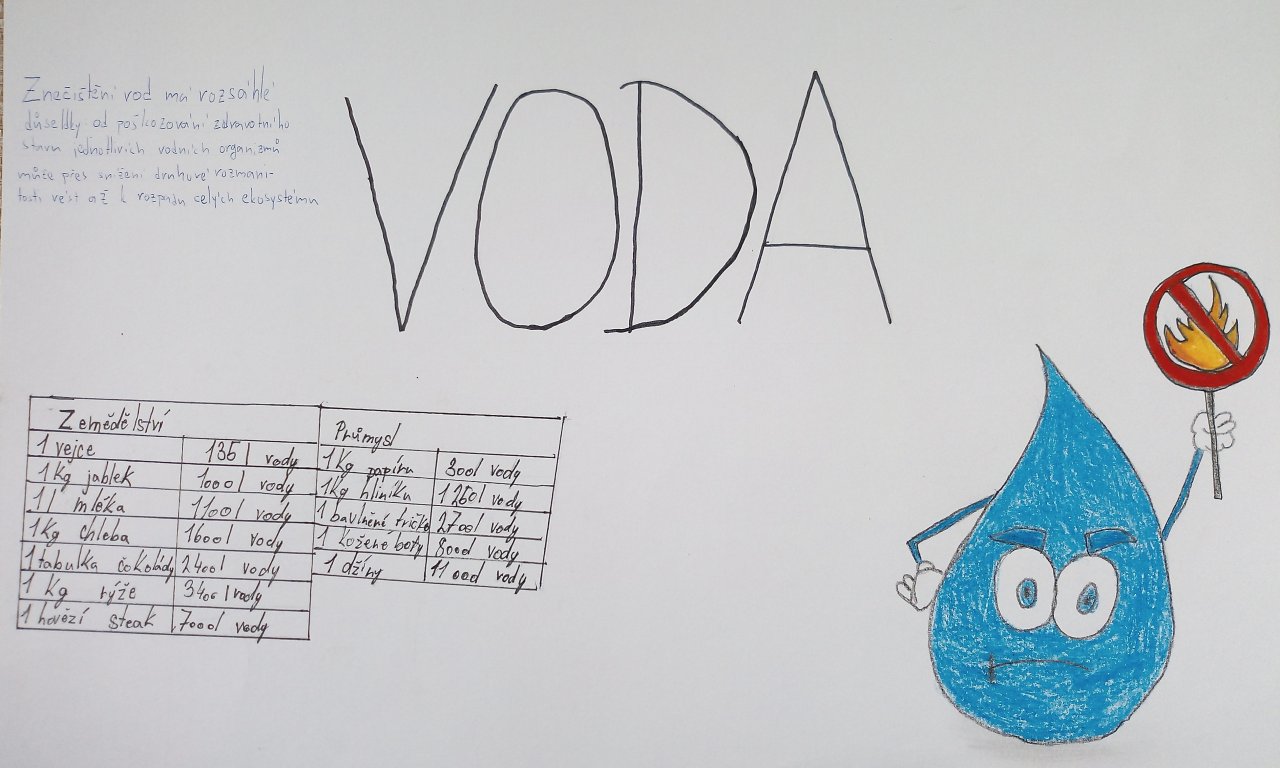 Znečištění vod má rozsáhlé
důsledky od poškozování zdravotního
stavu jednotlivích vodních organizmů
může přes snížení druhové rozmani-
tosti vést až k rozpadu celých ekosystému
VODA
Zemědělství
1 vejce 135 l vody
1 Kg jablek 1000 l vody
1 l mléka 1100 l vody
1 Kg chleba 1600 l vody
1 tabulka čokolády 2400 l vody
1 Kg rýže 3400 l vody
1 hovězí steak 7000 l vody
Průmysl
1 Kg papíru 300 l vody
1 Kg hliníku 1260 l vody
1 bavlnění tričko 2700 l vody
1 kožené boty 8000 vody
1 džíny 11 000 vody